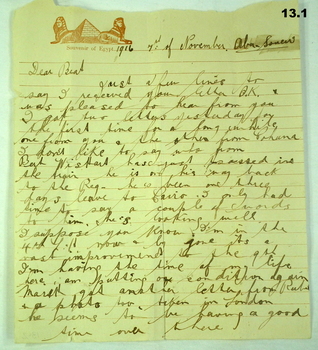 13.1
Souvenir of Egypt
1916 7th of November, Abou Soueir
Dear Beat
Just a few lines to
say I received your letter O.K. &
was pleased to hear from you
I got two letters yesterday
the first time for a long
one from you & the other from
I don't like to say who from
But Wishart has just passed in
the train he is on his way back
to the Reg. he's been on three
days leave to Cairo I only had
time to say a couple of words
to him, he's looking well
I suppose you know I'm in the
4th now & by gone its a
vast improvement to the
I'm having the time of my life
here am putting on condition again
got another letter from
& a photo too taken in London
he seems to be having a good
time over there